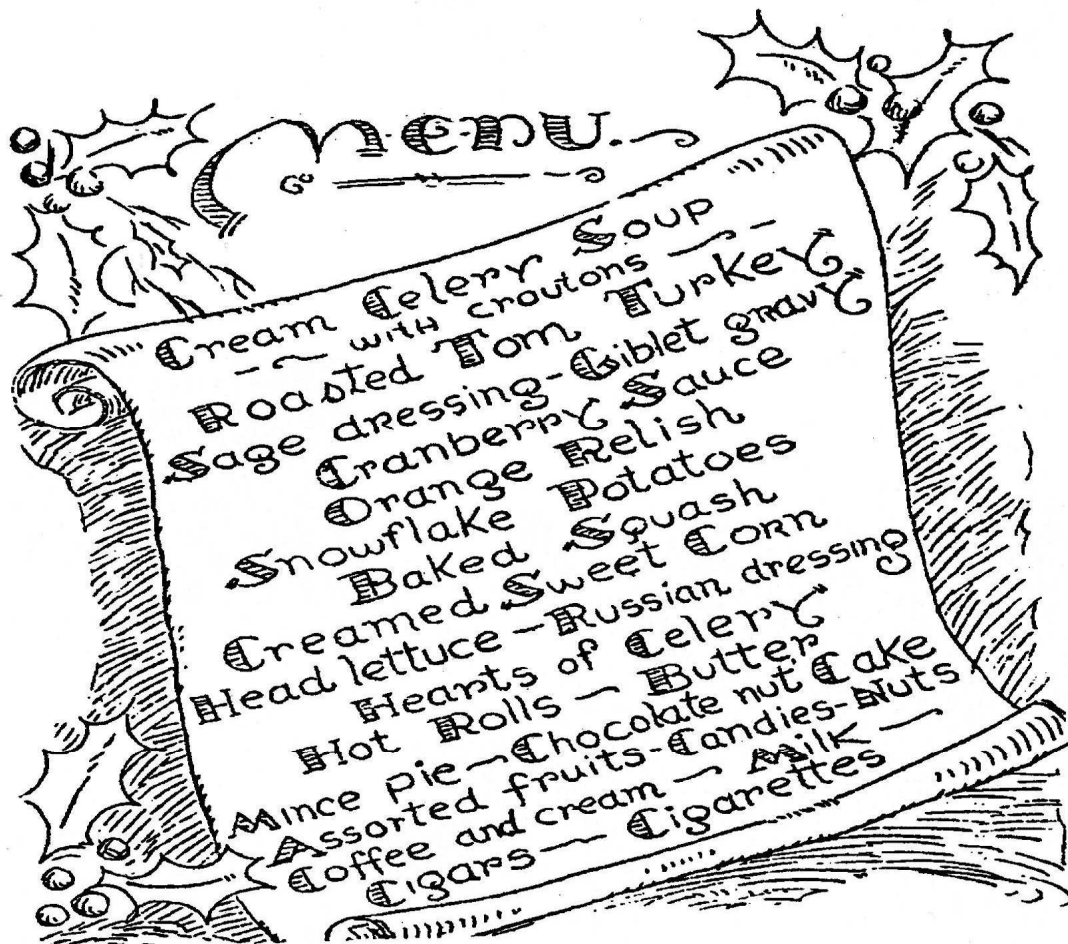 Menu.
Cream Celery Soup
- ~ with croutons ~ -
Roasted Tom Turkey
Sage dressing - Giblet gravy
Cranberry Sauce
Orange Relish
Snowflake Potatoes
Baked Squash
Creamed Sweet Corn
Head lettuce - Russian dressing
Hearts of Celery
Hot Rolls ~ Butter
Mince pie ~ Chocolate nut Cake
Assorted fruits - Candies - Nuts
Coffee and cream ~ Milk ~
Cigars ~ Cigarettes